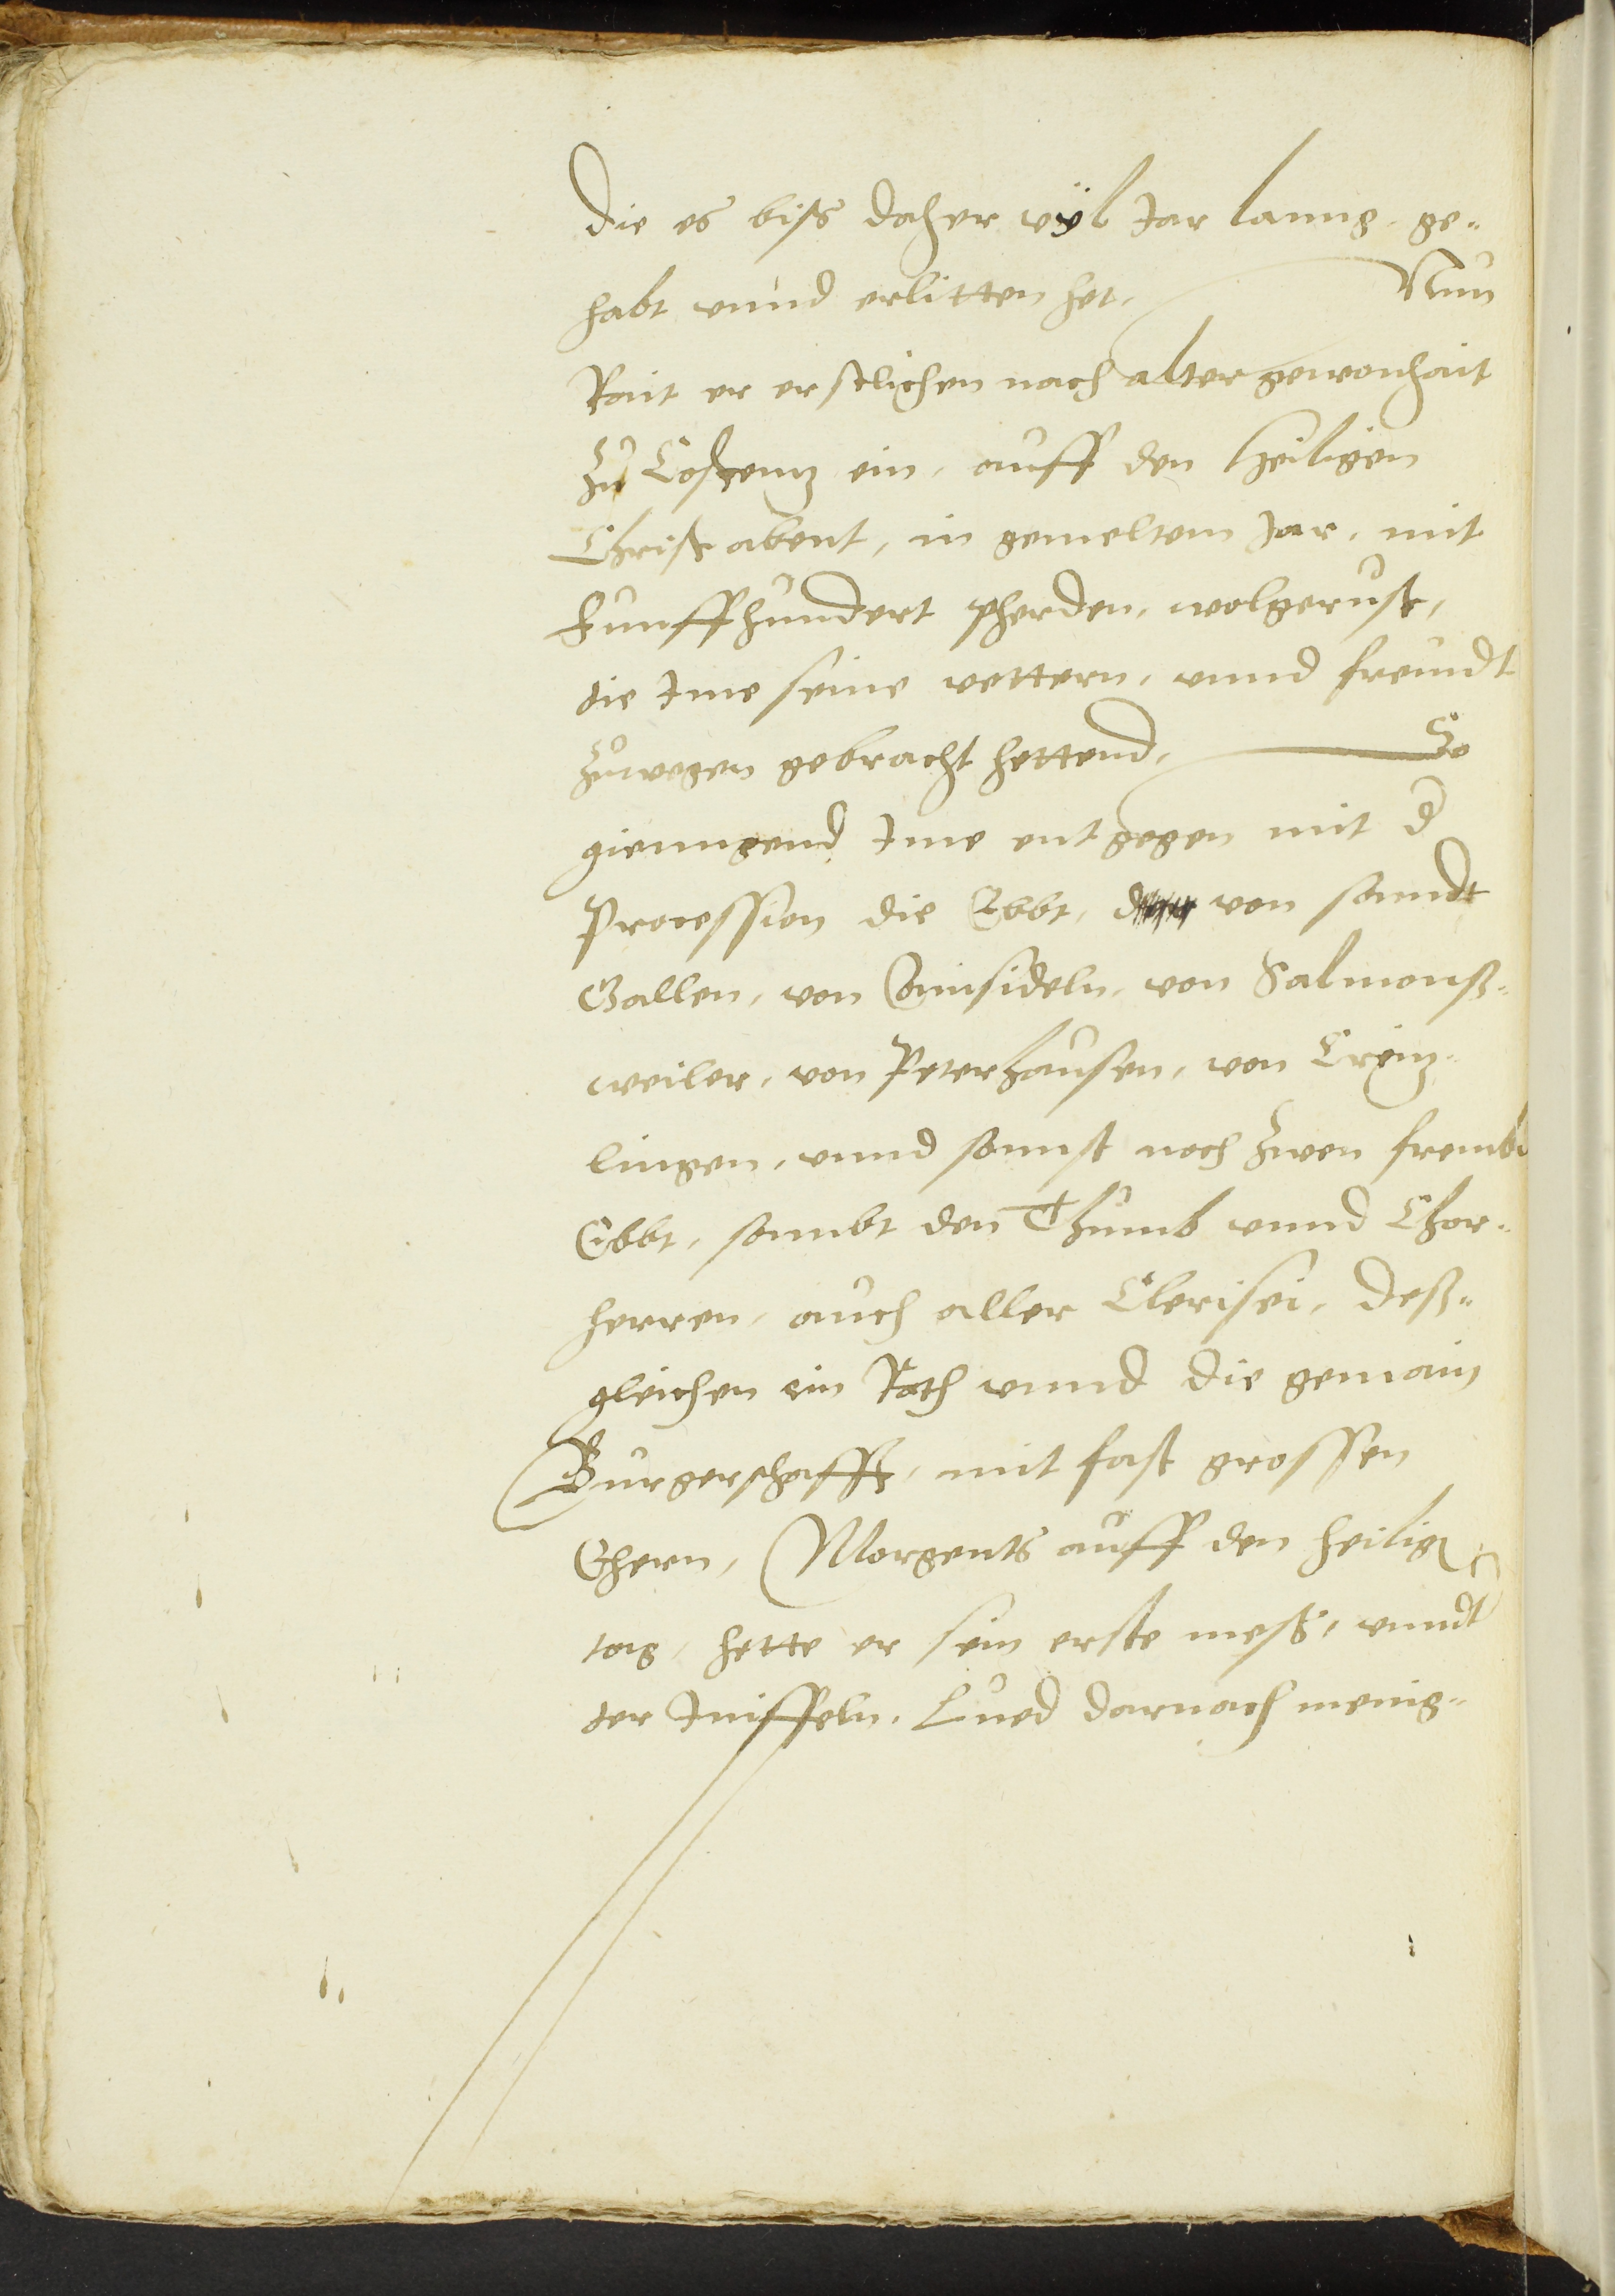 die es biß daher vÿl Jar lanng, ge¬
habt vnnd erlitten het, Nun
Rait er erstlichen nach alter gewonhait
Zů Costentz ein, auff den heiligen
Christ abent, in gemeltem Jar, mit
Funffhundert Pherden, wolgerust,
die Jme seine vettern, vnnd freundt
zůwegen gebracht hettend, So
gienngend Jme entgegen mit d
Procession die Ebbt, von sanndt
Gallen, von Ainsideln, von Salmonß¬
weiler, von Peterhausen, von Creitz¬
lingen, vnnd sonnst noch zwen frembd
Ebbt, sambt den Thumb vnnd Chor¬
herren, auch aller Clerisei, deß¬
gleichen ein Rath vnnd die gemain
Burgerschafft, mit fast grossen
Ehern, Morgents auff den heilig
tag, hette er sein erste meß, vnndt
ter Jnffeln, Lued darnach menig¬